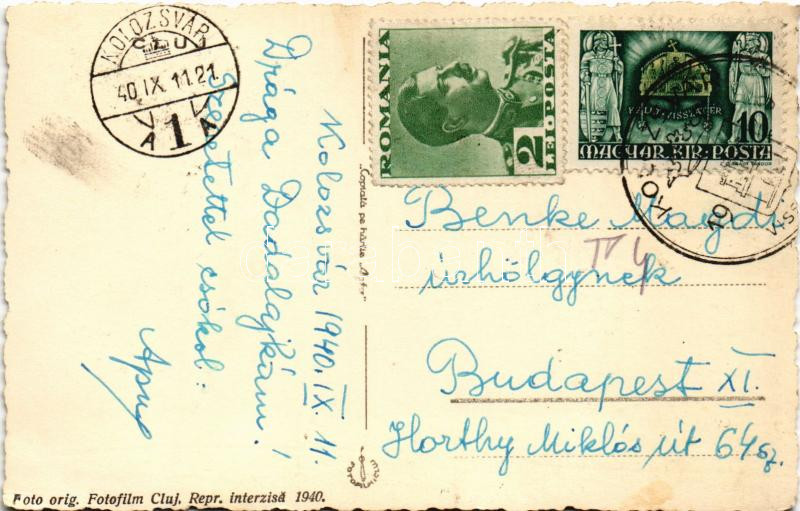 KOLOZSVÁR
40 IX. 11. 21
A 1 A
ROMANIA
2
LEI·POSTA
KELETI VISSZATÉR
10
MAGYAR·KIR·POSTA
Kolozsvár 1940. IX. 11.
Drága Dadalajkám!
Szeretettel csókol:
Apus
Benke Magdi
úrhölgynek
Budapest XI.
Horthy Miklós út 64 sz.
"Copiată pe hârtie "
Foto orig. Fotofilm Cluj. Repr. interzisă 1940.